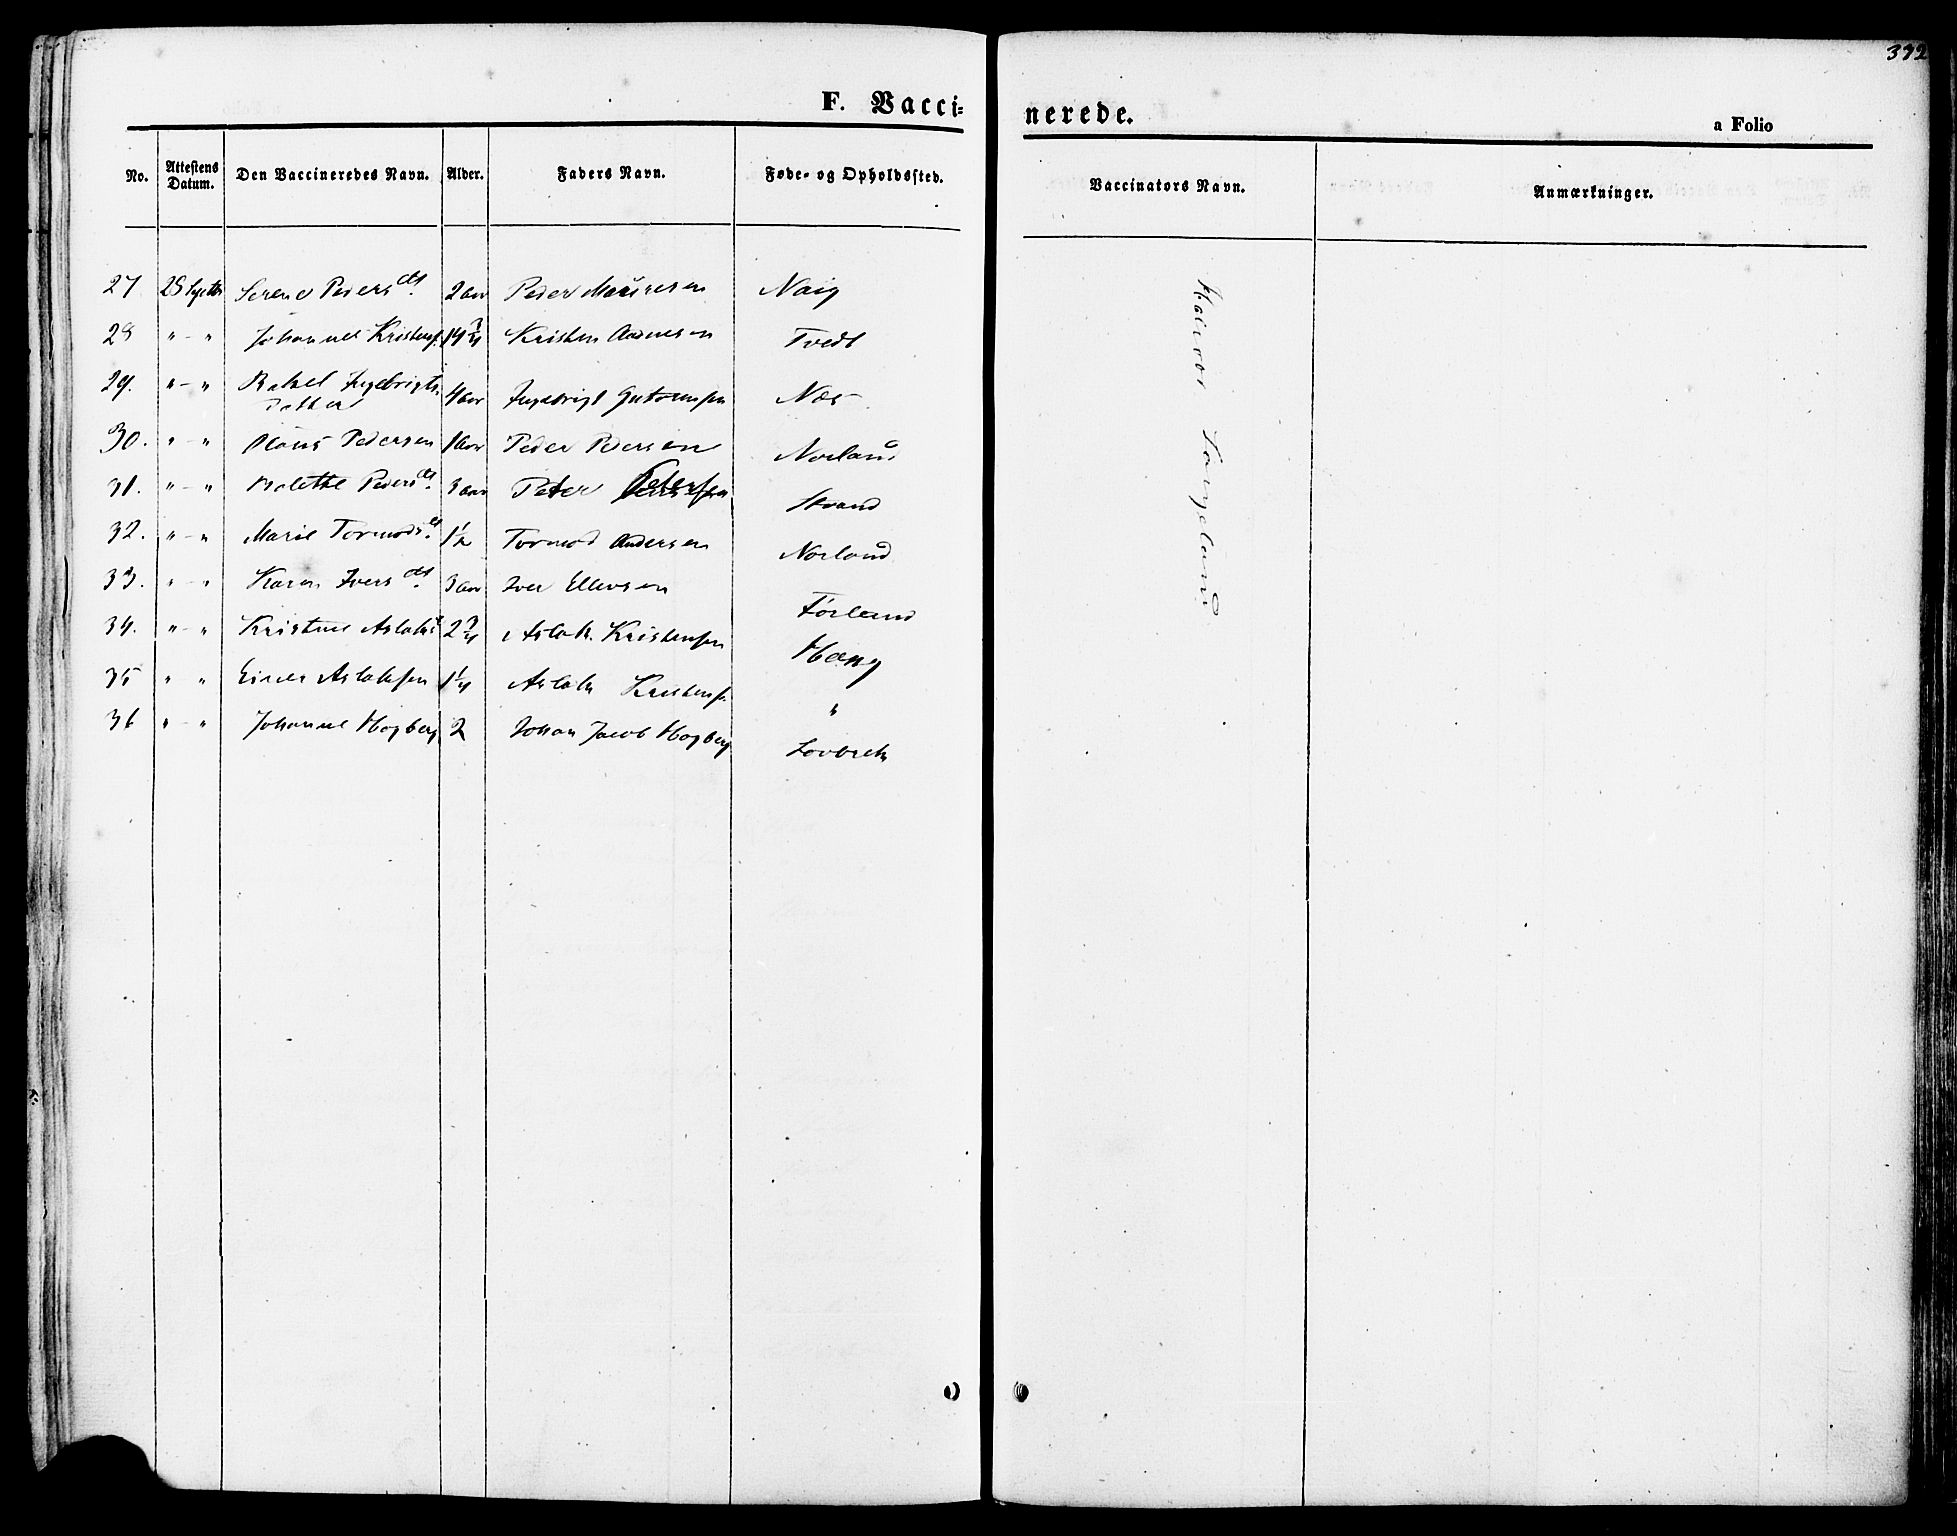 372
F. Vacci-
nerede.
a Folio
No. Attestens Datum. Den Vaccineredes Navn. Alder. Faders Navn. Føde- og Opholdssted. Vaccinators Navn. Anmærkninger.
27 Serene Peders dt. 2 aar Peder Naig
28 " - " Johannes Kristens. 14 3/4 Kristen Andersen Tvedt
29. " - " Rakel Ingebrigts datter 4 aar Ingebrigt Gutormsen Næs
30. " - " Pedersen 1 aar Peder Pedersen Norland
31. " - " Peders dt. 3 aar Peter Petersen Strand
32. " - " Marie Tormods dt. 1 1/2 Tormod Andersen Norland
33. " - " Karen Ivers dt. 3 aar Iver Ellevsen Førland
34. " - " Kristine Aslaks dt 2 3/4 Aslak Kristensen
35 " " Einer Aslaksen 1 1/4 Aslak Kristens. "
36 " - " Johanne Høgberg 2 Johan Jacob Høgberg Lovbrek
Halvor Langeland